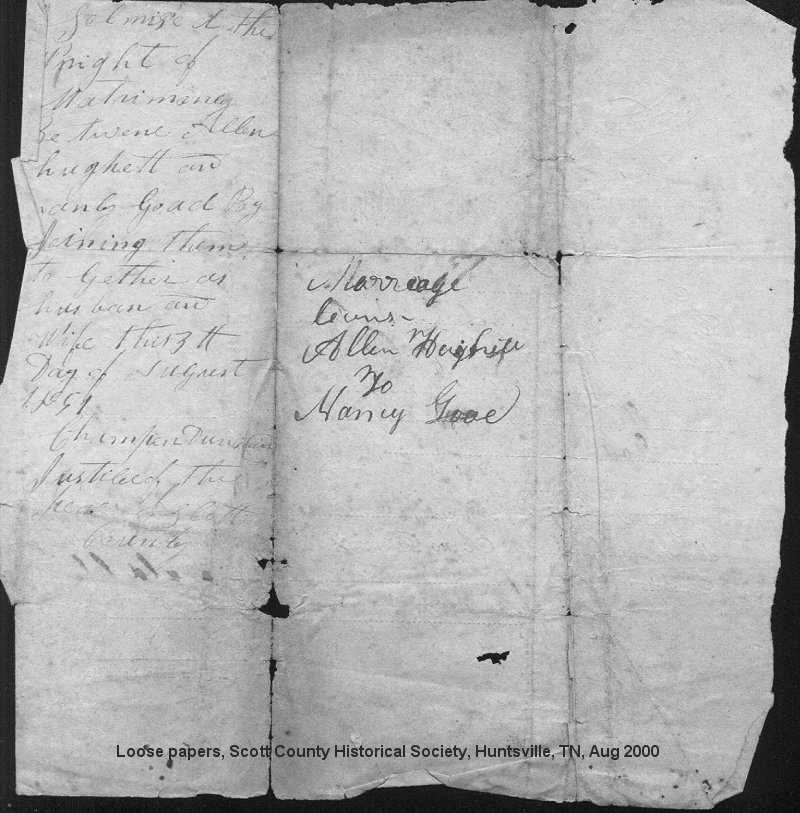 Solmise d the
Wright of
Matrimoney
Be twene Allen
hughett an
Nancy Goad By
Joining them
to Gether as
husban an
Wife this 3 tt
Day of August
Justice of the
County
Marreage
Allen Hughett
To
Nancy Goad
Loose papers, Scott County Historical Society, Huntsville, TN, Aug 2000